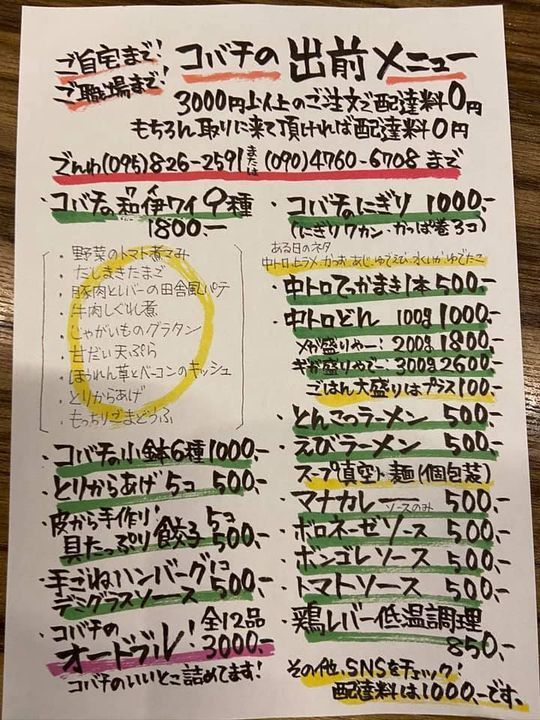 ご自宅まで!
ご職場まで!
コバチの出前メニュー
3000円以上のご注文で配達料0円
もちろん取りに来て頂ければ配達料0円
でんわ(095)826-2591または(090)4760-6708まで
・コバチの和伊ワイ9種
ワイ
1800.-
・野菜のトマト煮こみ
・だしまきたまご
・豚肉とレバーの田舎風パテ
・牛肉しぐれ煮
・じゃがいものグラタン
・甘だい天ぷら
・ほうれん草とベーコンのキッシュ
・とりからあげ
・もっちりごまどうふ
・コバチの小鉢6種1000.-
・とりからあげ5コ 500.-
・皮から手作り!5コ
具たっぷり餃子500.-
・手ごねハンバーグ1コ
デミグラスソース500.-
・コバチの全12品
オードブル!3000.-
コバチのいいとこ詰めてます!
・コバチのにぎり 1000.-
(にぎり7カン・かっぱ巻3コ)
ある日のネタ
中トロ・ヒラメ・かつお・あじ・ゆでえび・水いか・ゆでたこ
・中トロてっかまき1本500.-
・中トロどん 100g1000.-
メガ盛りやー:200g1800.-
ギガ盛りやでー:300g2600.-
ごはん大盛りはプラス100.-
・とんこつラーメン 500.-
・えびラーメン 500.-
スープ(真空)・麺(個包装)
・マナカレーソースのみ 500.-
・ボロネーゼソース 500.-
・ボンゴレソース 500.-
・トマトソース 500.-
・鶏レバー低温調理
850.-
その他、SNSをチェック!
配達料は1000.-です。